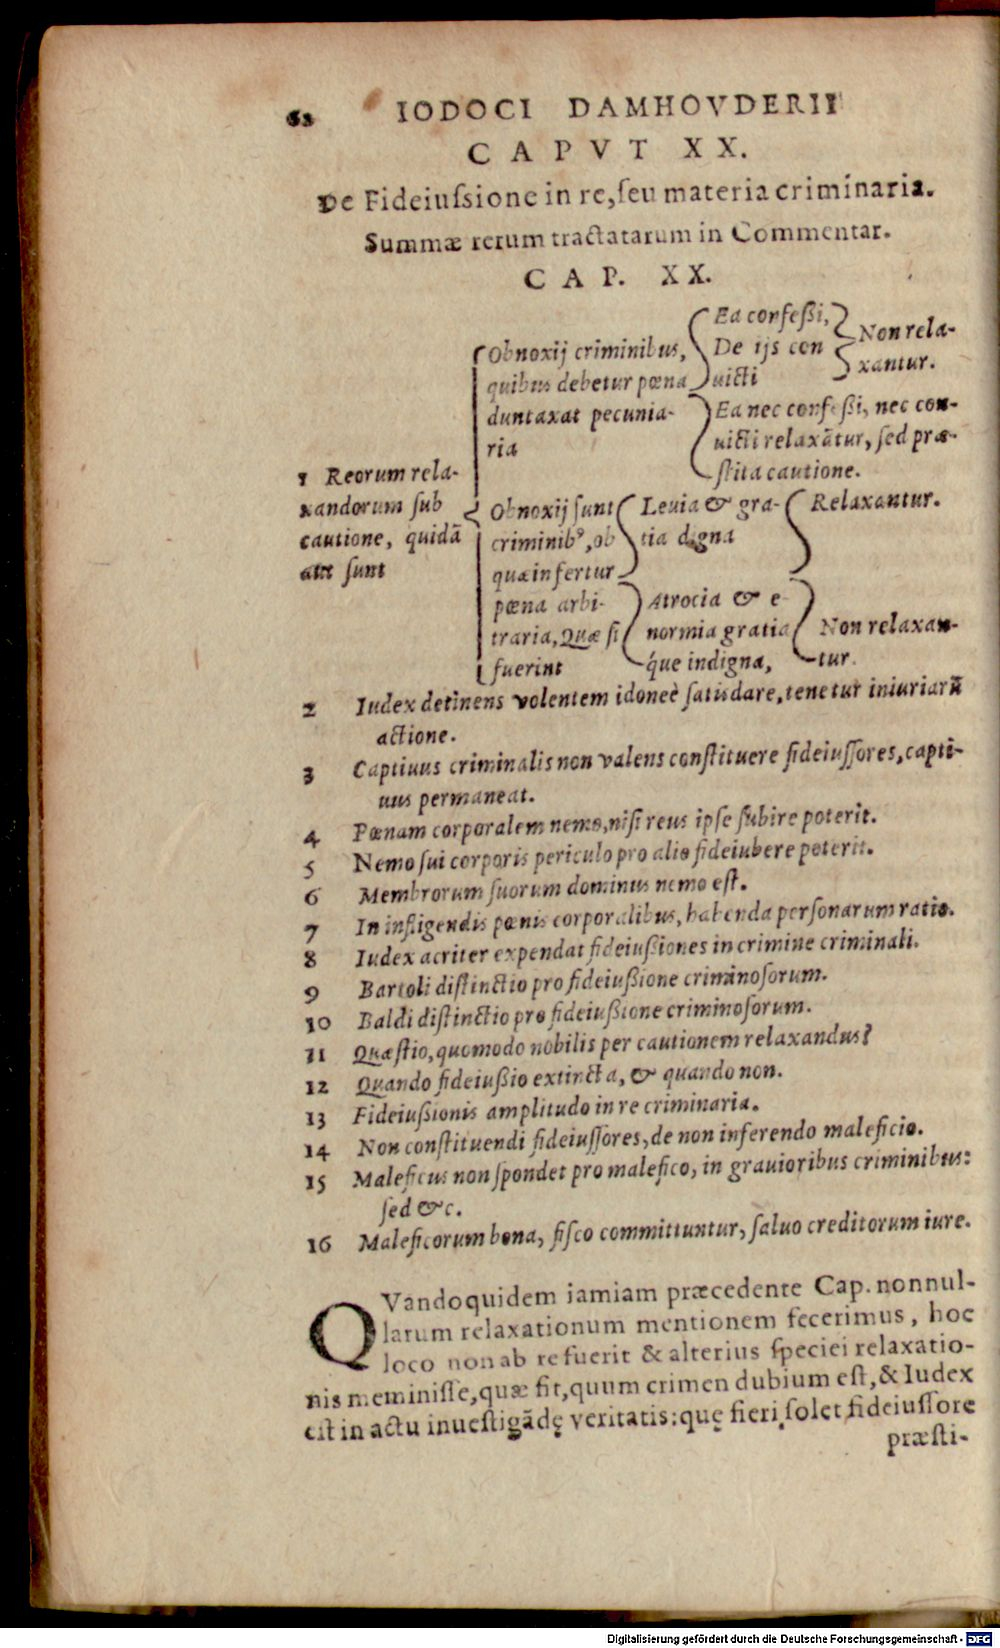 62 IODOCI DAMHOVDERII
CAPVT XX.
De Fideiuſsione in re, ſeu materia criminaria.
Summæ rerum tractatarum in Commentar.
CAP. XX.
1 Reorum rela-
xandorum ſub
cautione, quidã
aut ſunt
Obnoxij criminibus,
quibus debetur pœna
duntaxat pecunia-
ria
Ea confeßi,
De ijs con
uicti
Non rela-
xantur.
Ea nec confeßi, nec con-
uicti relaxãtur, ſed præ-
ſtita cautione.
Obnoxij ſunt
criminibꝰ, ob
quæ infertur
pœna arbi-
traria, Quæ ſi
fuerint
Leuia & gra-
tia digna
Relaxantur.
Atrocia & e-
normia gratia
q́ue indigna,
Non relaxan-
tur.
2 Iudex detinens volentem idoneè ſatisdare, tenetur iniuriarũ
actione.
3 Captiuus criminalis non valens conſtituere fideiuſſores, capti-
uus permaneat.
4 Pœnam corporalem nemo, niſi reus ipſe ſubire poterit.
5 Nemo ſui corporis periculo pro alio fideiubere poterit.
6 Membrorum ſuorum dominus nemo eſt.
7 In infligendis pœnis corporalibus, habenda perſonarum ratio.
8 Iudex acriter expendat fideiußiones in crimine criminali.
9 Bartoli diſtinctio pro fideiußione criminoſorum.
10 Baldi diſtinctio pro fideiußione criminoſorum.
11 Quæſtio, quomodo nobilis per cautionem relaxandus?
12 Quando fideiußio extincta, & quando non.
13 Fideiußionis amplitudo in re criminaria.
14 Non conſtituendi fideiuſſores, de non inferendo maleficio.
15 Maleficus non ſpondet pro malefico, in grauioribus criminibus:
ſed &c.
16 Maleficorum bona, fiſco committuntur, ſaluo creditorum iure.
QVandoquidem iamiam præcedente Cap. nonnul-
larum relaxationum mentionem fecerimus, hoc
loco non ab re fuerit & alterius ſpeciei relaxatio-
nis meminiſſe, quæ fit, quum crimen dubium eſt, & Iudex
eſt in actu inueſtigãdę veritatis: quę fieri ſolet fideiuſſore
præſti-
Digitalisierung gefördert durch die Deutsche Forschungsgemeinschaft - DFG